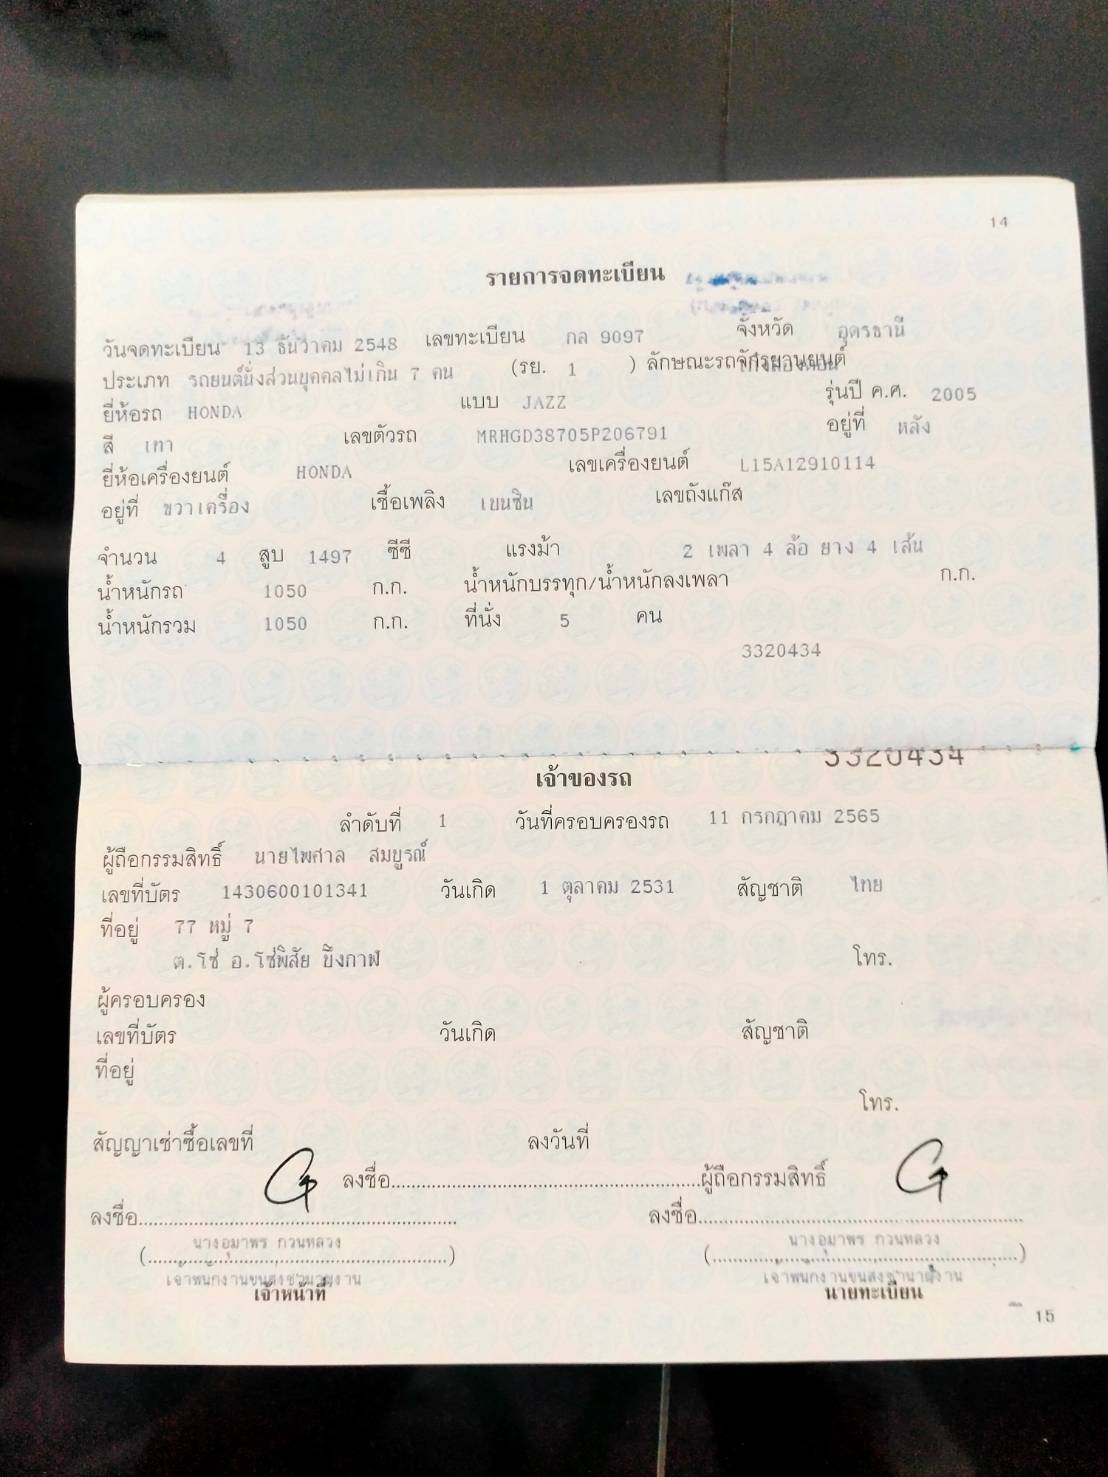 14
รายการจดทะเบียน
วันจดทะเบียน 13 ธันวาคม 2548 เลขทะเบียน กล 9097 จังหวัด อุดรธานี
ประเภท รถยนต์นั่งส่วนบุคคลไม่เกิน 7 คน (รย. 1 ) ลักษณะรถ/จักรยานยนต์
ยี่ห้อรถ HONDA แบบ JAZZ รุ่นปี ค.ศ. 2005
สี เทา เลขตัวรถ MRHGD38705P206791 อยู่ที่ หลัง
ยี่ห้อเครื่องยนต์ HONDA เลขเครื่องยนต์ L15A12910114
อยู่ที่ ขวาเครื่อง เชื้อเพลิง เบนซิน เลขถังแก๊ส
จำนวน 4 สูบ 1497 ซีซี แรงม้า 2 เพลา 4 ล้อ ยาง 4 เส้น
น้ำหนักรถ 1050 ก.ก. น้ำหนักบรรทุก/น้ำหนักลงเพลา ก.ก.
น้ำหนักรวม 1050 ก.ก. ที่นั่ง 5 คน
3320434
3320434
เจ้าของรถ
ลำดับที่ 1 วันที่ครอบครองรถ 11 กรกฎาคม 2565
ผู้ถือกรรมสิทธิ์ นายไพศาล สมบูรณ์
เลขที่บัตร 1430600101341 วันเกิด 1 ตุลาคม 2531 สัญชาติ ไทย
ที่อยู่ 77 หมู่ 7
ต.โซ่ อ.โซ่พิสัย บึงกาฬ โทร.
ผู้ครอบครอง
เลขที่บัตร วันเกิด สัญชาติ
ที่อยู่
โทร.
สัญญาเช่าซื้อเลขที่ ลงวันที่
ลงชื่อ ผู้ถือกรรมสิทธิ์
ลงชื่อ ลงชื่อ
(นางอุมาพร กวนหลวง) (นางอุมาพร กวนหลวง)
เจ้าพนักงานขนส่งชำนาญงาน เจ้าพนักงานขนส่งชำนาญงาน
เจ้าหน้าที่ นายทะเบียน
15